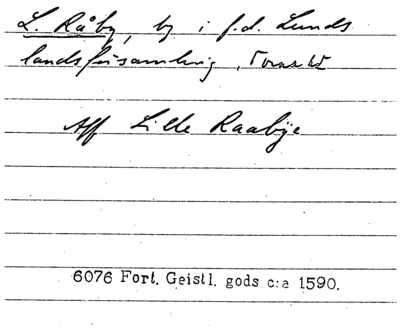 L. Råby, by i f.d. Lunds
landsförsamling, Torna hd
Aff Lille Raabÿe
6076 Fort. Geistl. gods c:a 1590.